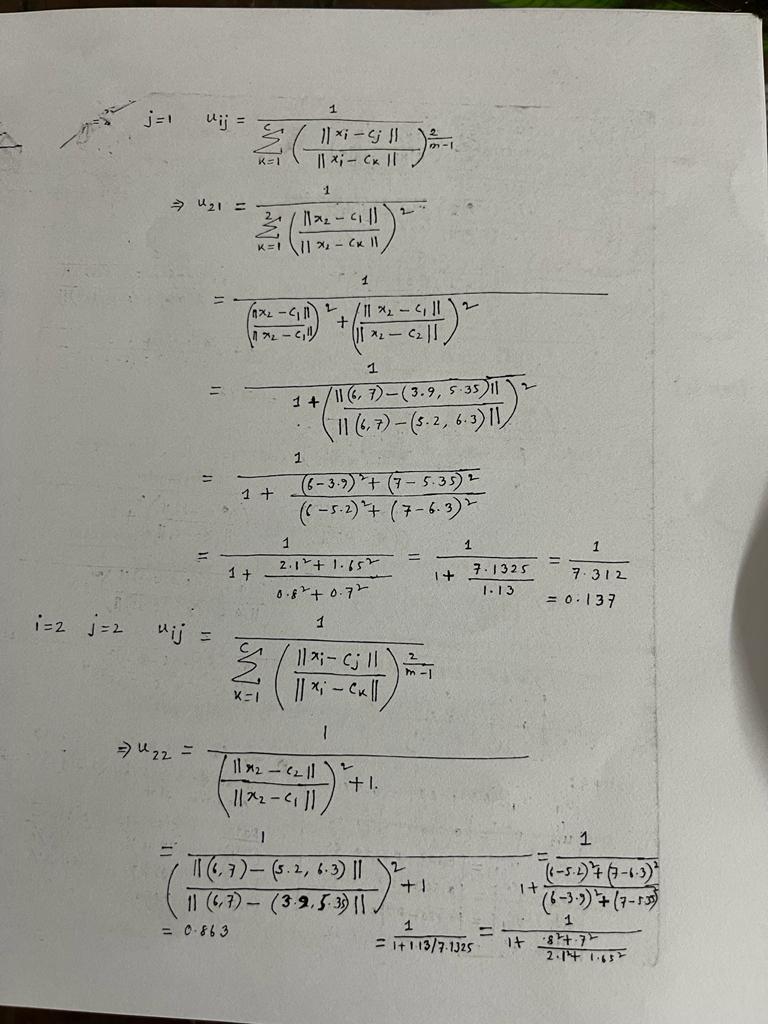 j=1 u_ij = 1 / Σ_{k=1}^{c} ( ||x_i - c_j|| / ||x_i - c_k|| )^{2/(m-1)}
⇒ u_21 = 1 / Σ_{k=1}^{2} ( ||x_2 - c_1|| / ||x_2 - c_k|| )^2
= 1 / ( ( ||x_2 - c_1|| / ||x_2 - c_1|| )^2 + ( ||x_2 - c_1|| / ||x_2 - c_2|| )^2 )
= 1 / ( 1 + ( ||(6, 7) - (3.9, 5.35)|| / ||(6, 7) - (5.2, 6.3)|| )^2 )
= 1 / ( 1 + ( (6-3.9)^2 + (7-5.35)^2 ) / ( (6-5.2)^2 + (7-6.3)^2 ) )
= 1 / ( 1 + ( 2.1^2 + 1.65^2 ) / ( 0.8^2 + 0.7^2 ) ) = 1 / ( 1 + 7.1325 / 1.13 ) = 1 / 7.312
= 0.137
i=2 j=2 u_ij = 1 / Σ_{k=1}^{c} ( ||x_i - c_j|| / ||x_i - c_k|| )^{2/(m-1)}
⇒ u_22 = 1 / ( ( ||x_2 - c_2|| / ||x_2 - c_1|| )^2 + 1. )
= 1 / ( ( ||(6,7) - (5.2, 6.3)|| / ||(6,7) - (3.9, 5.35)|| )^2 + 1 ) = 1 / ( 1 + ( (6-5.2)^2 + (7-6.3)^2 ) / ( (6-3.9)^2 + (7-5.35)^2 ) )
= 0.863 = 1 / ( 1 + 1.13/7.1325 ) = 1 / ( 1 + ( .8^2 + .7^2 ) / ( 2.1^2 + 1.65^2 ) )